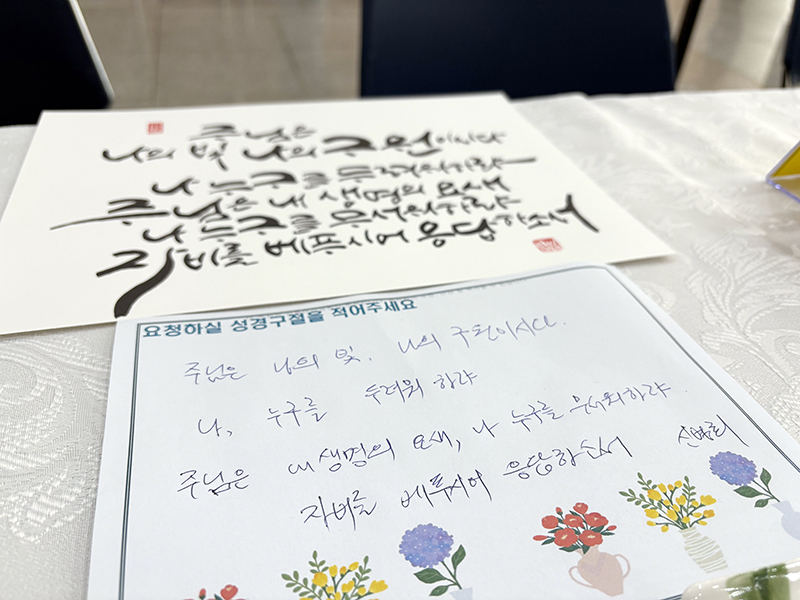 주님은
나의 빛 나의 구원이시다
나 누구를 두려워하랴
주님은 내 생명의 요새
나 누구를 무서워하랴
자비를 베푸시어 응답하소서
요청하실 성경구절을 적어주세요
주님은 나의 빛, 나의 구원이시다.
나, 누구를 두려워 하랴
주님은 내 생명의 요새, 나 누구를 무서워하랴.
자비를 베푸시어 응답하소서